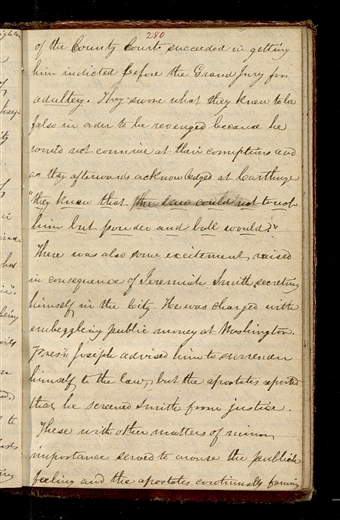 280
of the County Court succeeded in getting
him indicted before the Grand Jury for
adultery. They swore what they knew to be
false in order to be revenged because he
would not connive at their corruptions and
as they afterwards acknowledged at Carthage
"they knew that the law could not touch
him but powder and ball would."
There was also some excitement raised
in consequence of Jeremiah Smith secreting
himself in the City. He was charged with
embezzling public money at Washington.
Pres't Joseph advised him to surrender
himself to the law, but the apostates reported
that he screened Smith from justice.
These with other matters of minor
importance served to arouse the publick
feeling and the apostates continually